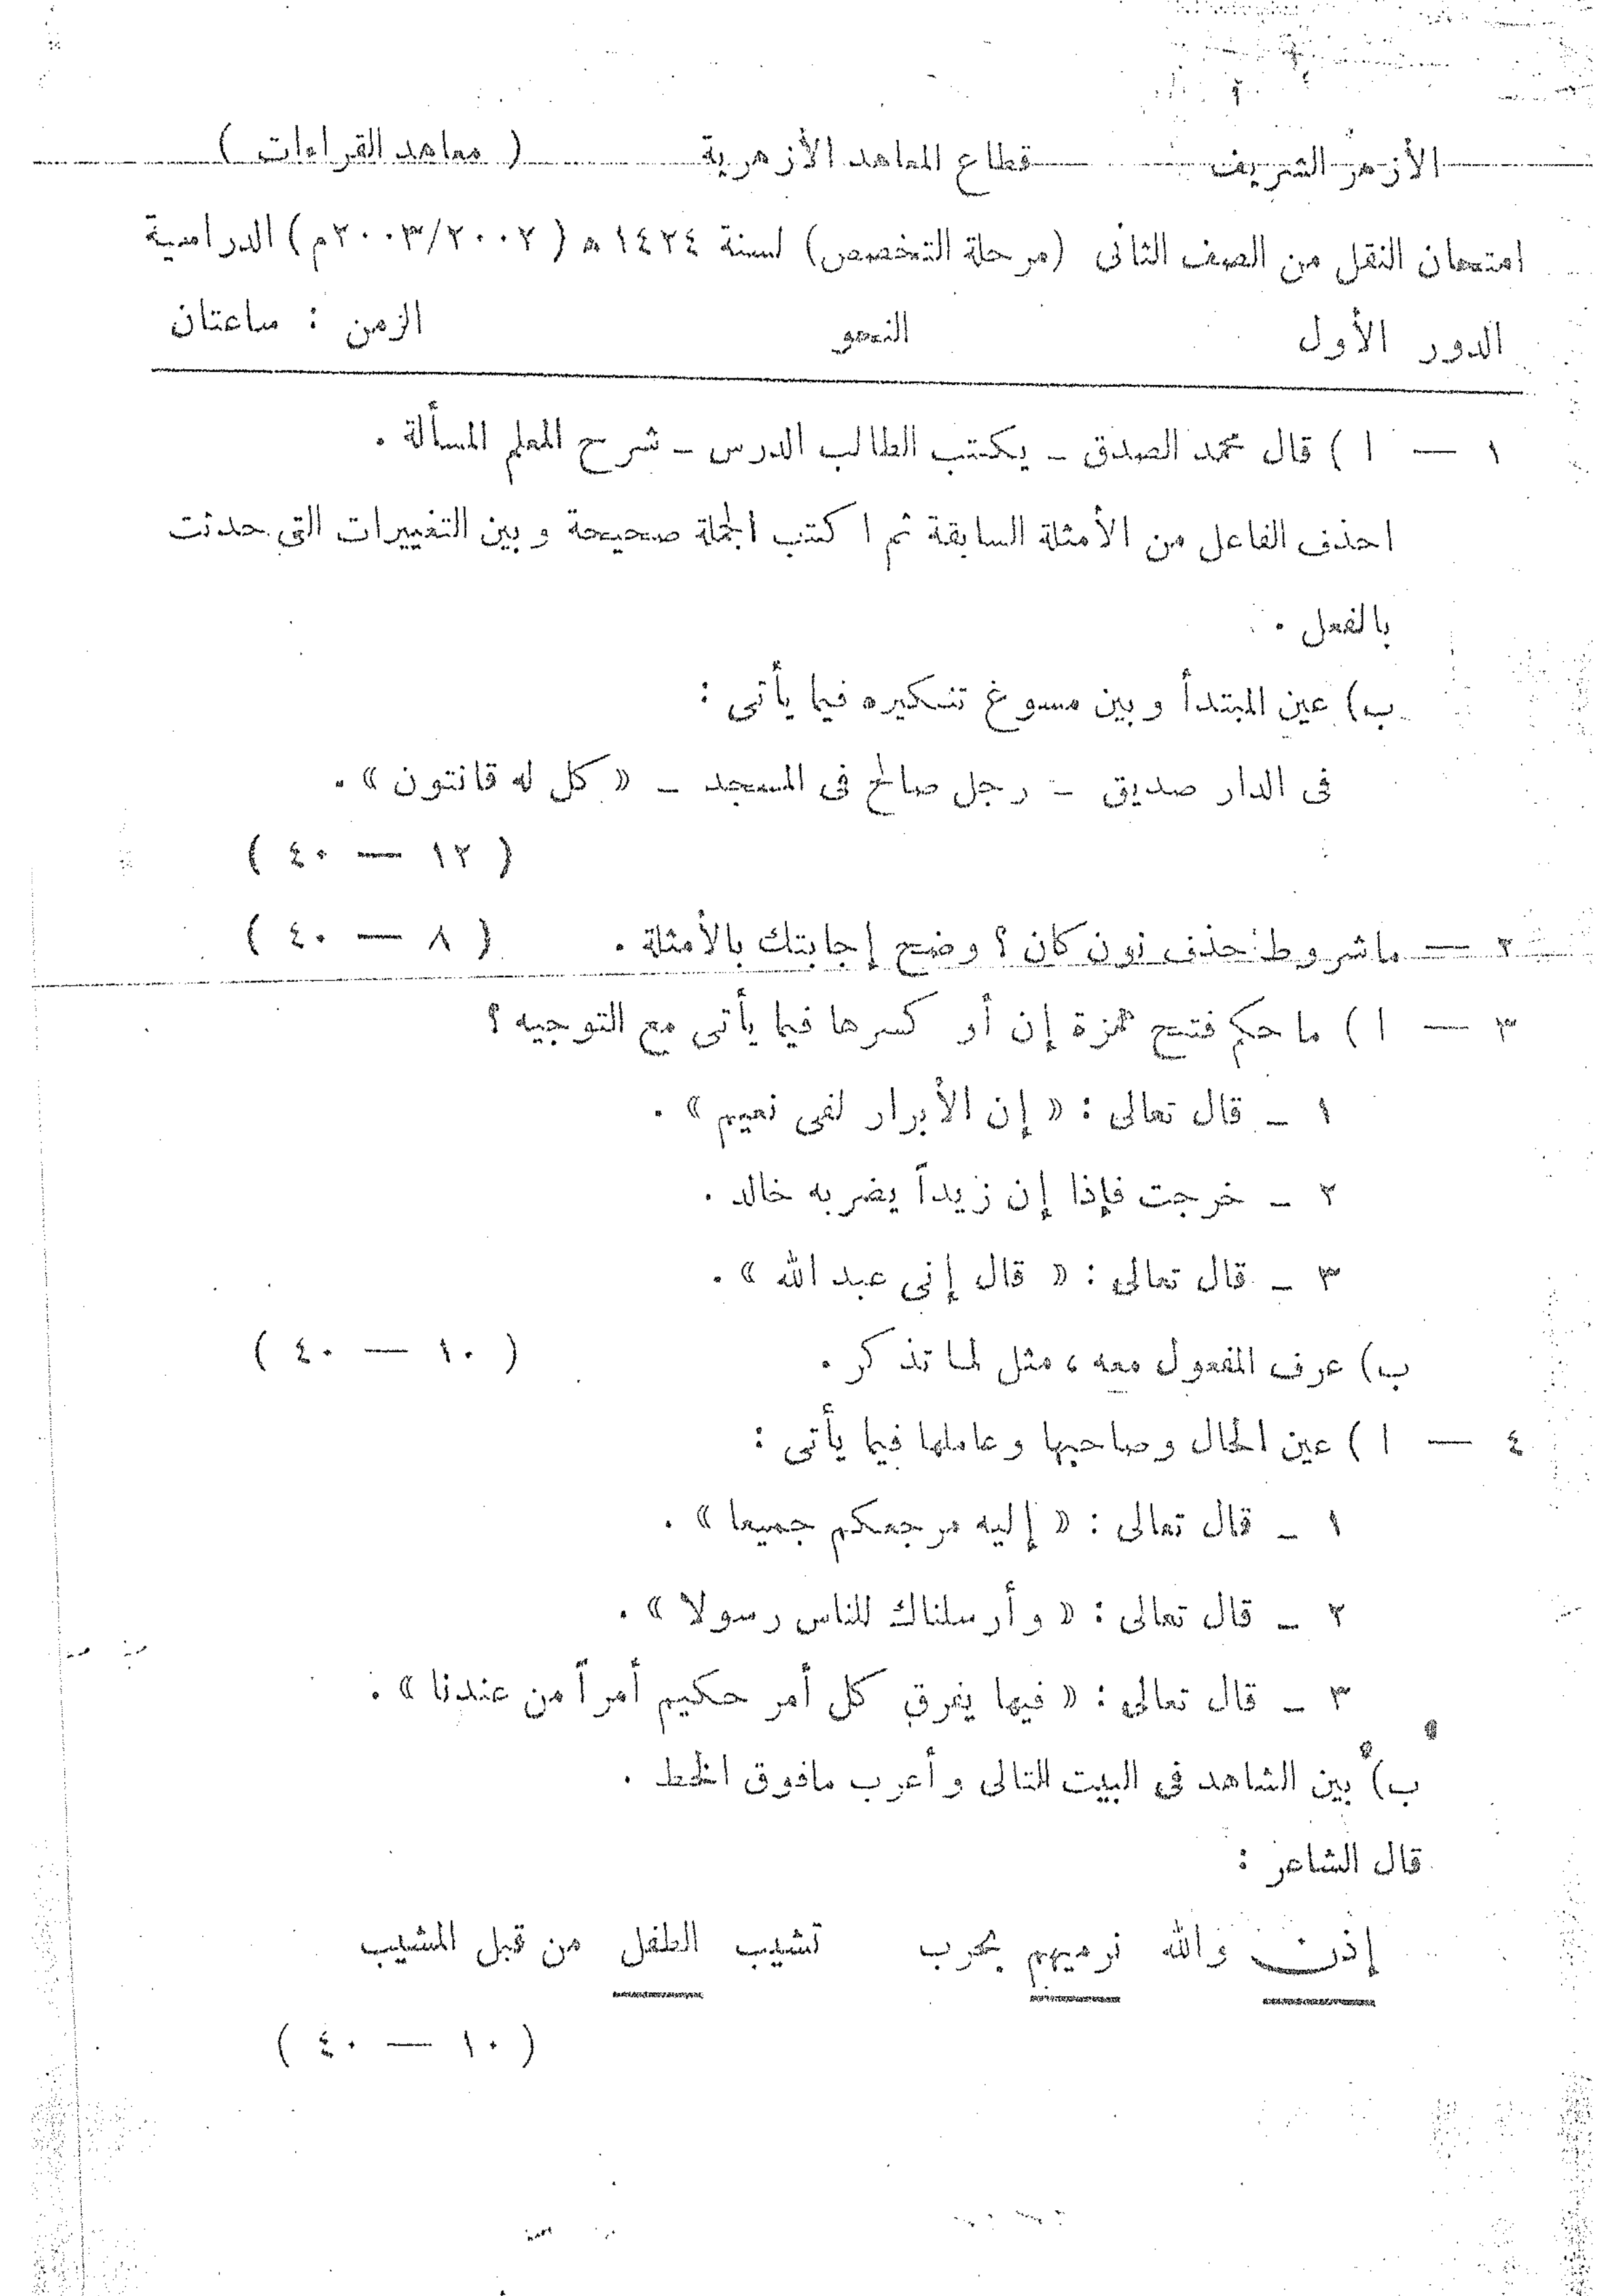 الأزهر الشريف قطاع المعاهد الأزهرية ( معاهد القراءات )
امتحان النقل من الصف الثانى (مرحلة التخصص) لسنة ١٤٢٤ ه ( ٢٠٠٣/٢٠٠٢م) الدراسية
الدور الأول النحو الزمن : ساعتان
١ — ا ) قال محمد الصدق ـ يكتب الطالب الدرس ـ شرح المعلم المسألة .
احذف الفاعل من الأمثلة السابقة ثم اكتب الجملة صحيحة وبين التغييرات التى حدثت
بالفعل .
ب) عين المبتدأ وبين مسوغ تنكيره فيما يأتى :
فى الدار صديق ـ رجل صالح فى المسجد ـ « كل له قانتون » .
( ١٢ — ٤٠ )
٢ — ماشروط حذف نون كان ؟ وضح إجابتك بالأمثلة . ( ٨ — ٤٠ )
٣ — ا ) ما حكم فتح همزة إن أو كسرها فيما يأتى مع التوجيه ؟
١ ـ قال تعالى : « إن الأبرار لفى نعيم » .
٢ ـ خرجت فإذا إن زيداً يضربه خالد .
٣ ـ قال تعالى : « قال إنى عبد الله » .
ب) عرف المفعول معه ، مثل لما تذكر . ( ١٠ — ٤٠ )
٤ — ا ) عين الحال وصاحبها وعاملها فيما يأتى :
١ ـ قال تعالى : « إليه مرجعكم جميعا » .
٢ ـ قال تعالى : « وأرسلناك للناس رسولا » .
٣ ـ قال تعالى : « فيها يفرق كل أمر حكيم أمراً من عندنا » .
ب) بين الشاهد فى البيت التالى وأعرب مافوق الخط .
قال الشاعر :
إذن والله نرميهم بحرب تشيب الطفل من قبل المشيب
( ١٠ — ٤٠ )